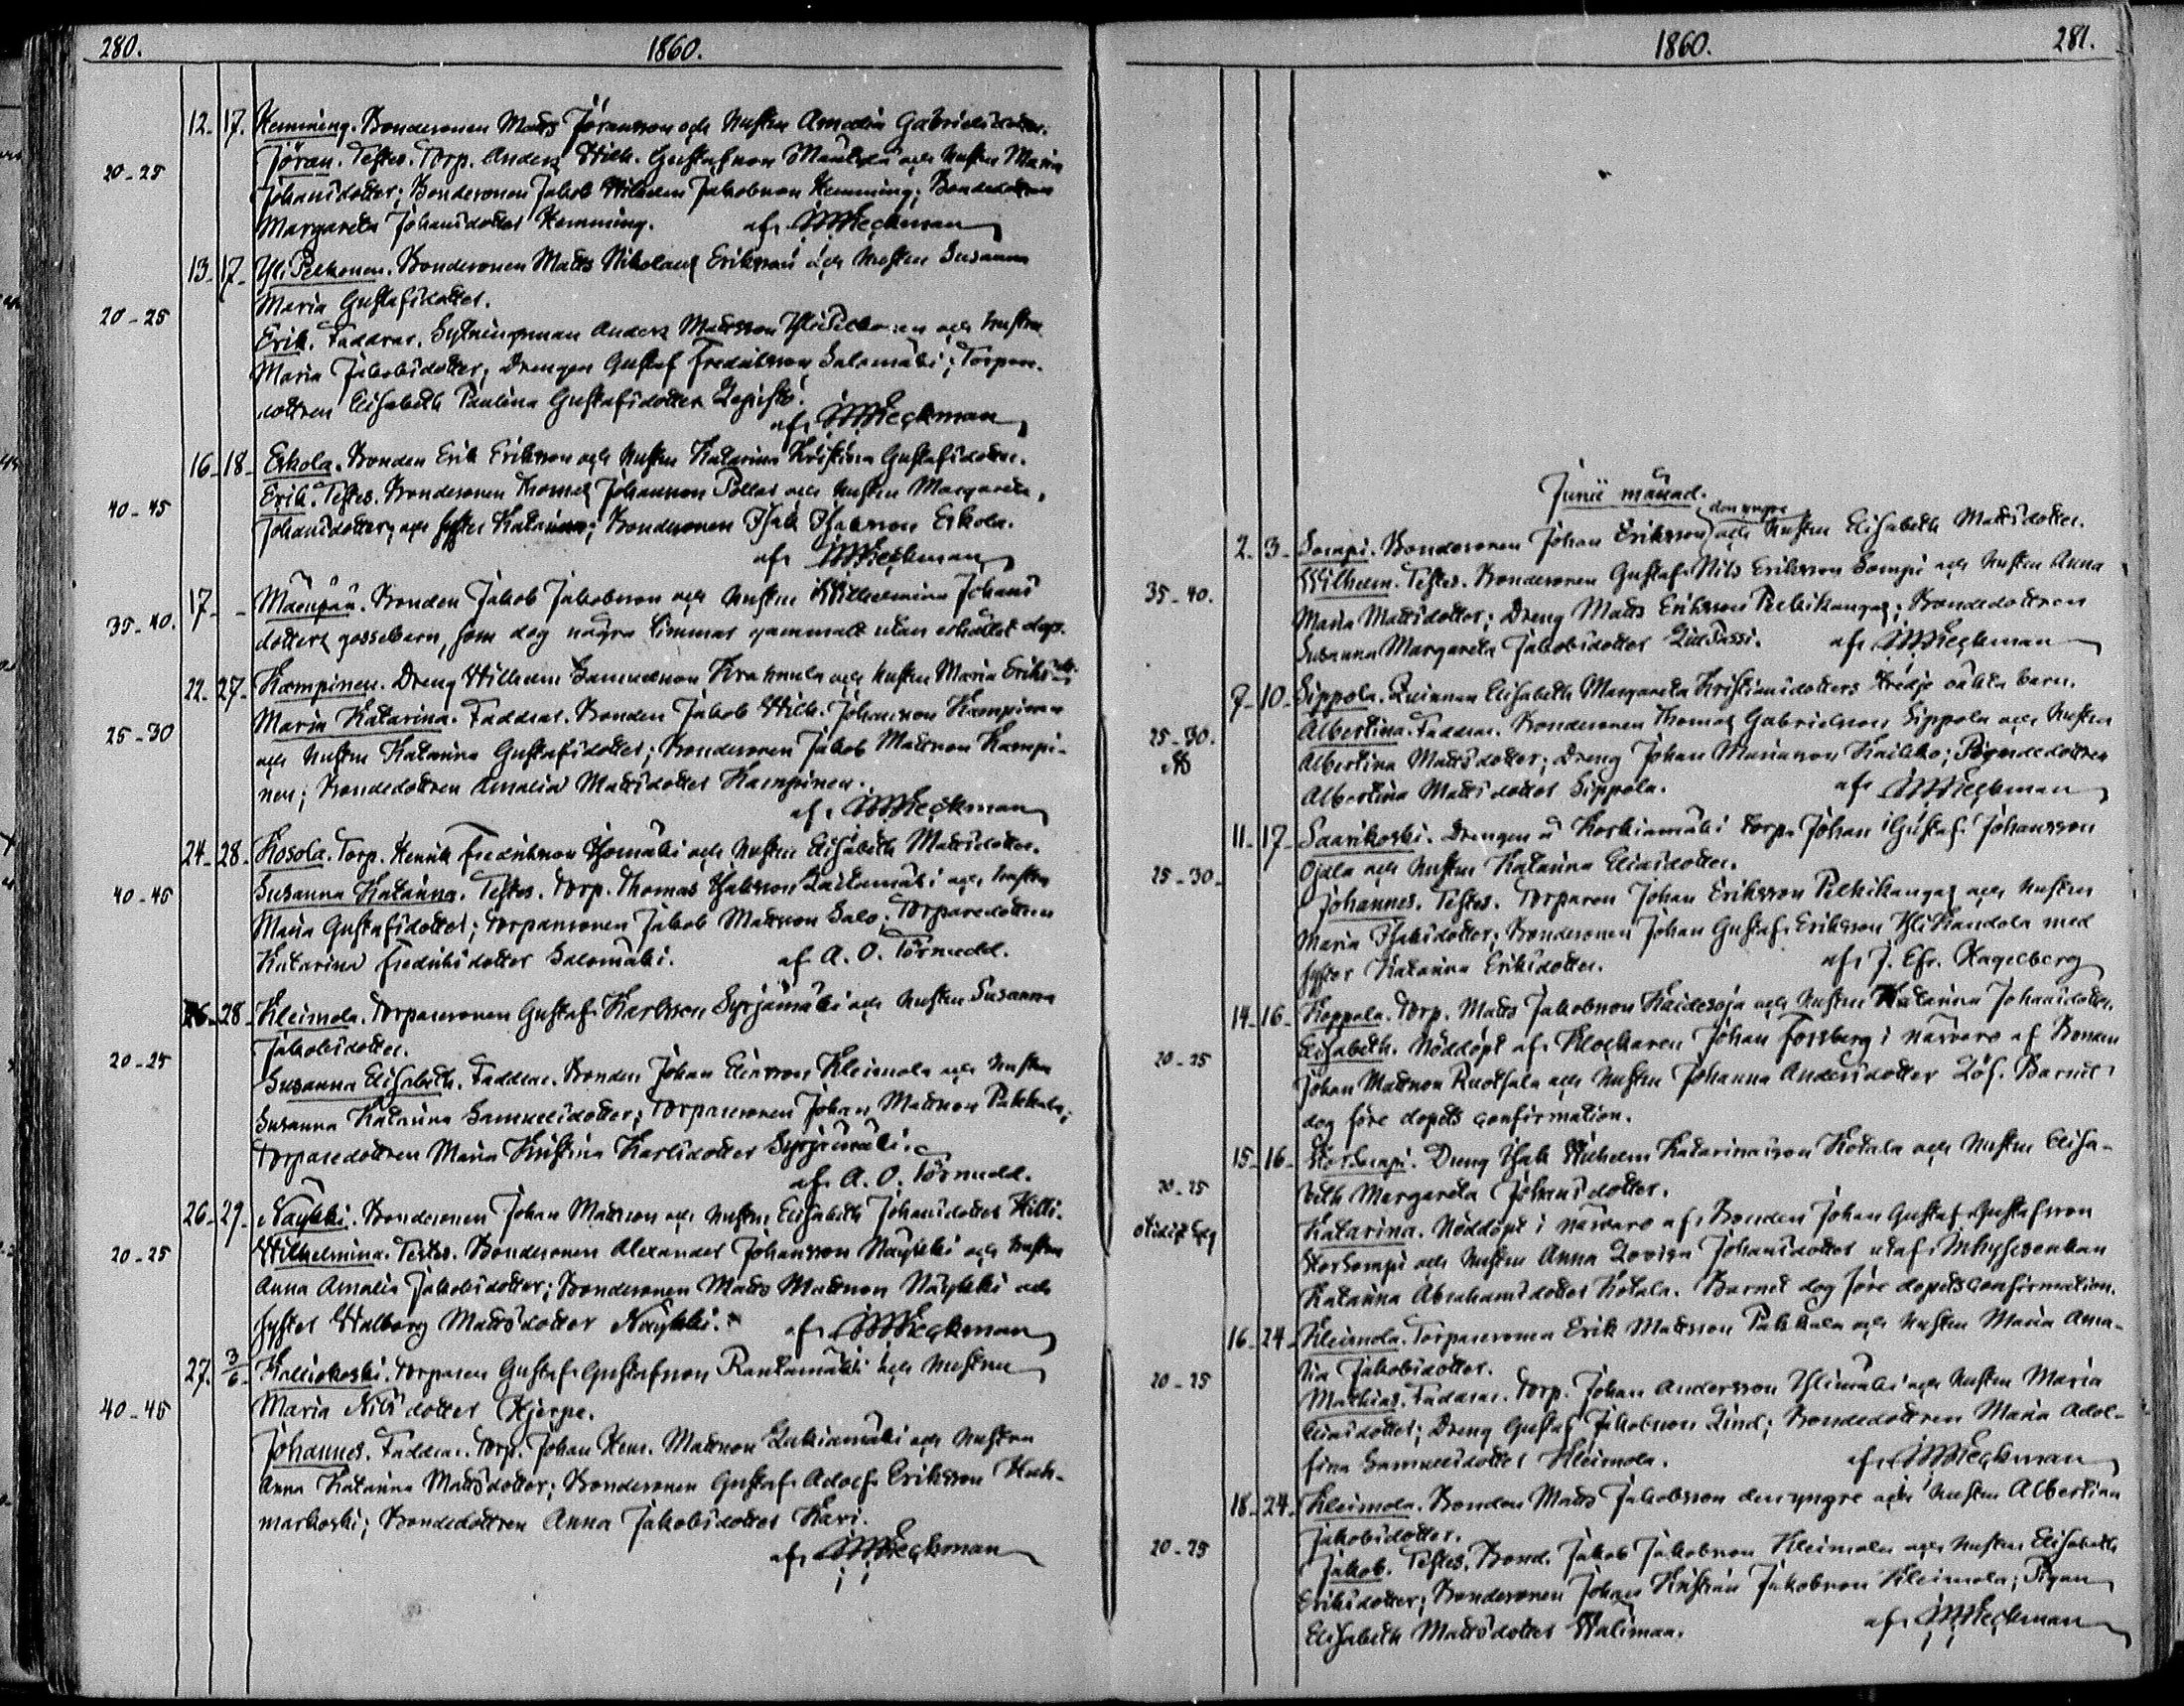 280. 1860.
12. 17. Hemming. Bondesonen Matts Jöransson och hustru Amalia Gabrielsdotter.
20-25 Jöran. Testes. Torp. Anders Wilh. Gustafsson och hustru Maria
Johansdotter; Bondesonen Jakob Wilhelm Jakobsson Hemming; Bondedottren
Margareta Johansdotter Hemming. af
13. 17. YliPelkonen. Bondesonen Matts Nikolaus Eriksson och hustru Susanna
Maria Gustafsdotter.
20-25
Erik. Faddrar. Sytningsman Anders Mattsson YliPelkonen och hustru
Maria Jakobsdotter; Drengen Gustaf Fredriksson Salomäki; Torpare-
dottren Elisabeth Paulina Gustafsdotter Lepistö.
af
16. 18. Erkola. Bonden Erik Eriksson och hustru Katarina Kristina Gustafsdotter.
40-45 Erik. Testes. Bondesonen Thomas Johansson Pollar och hustru Margareta
Johansdotter, och syster Katarina; Bondesonen Isak Isaksson Erkola.
af
17. - Mäenpää. Bonden Jakob Jakobsson och hustru Wilhelmina Johans
35-40. dotters gossebarn, som dog några timmar gammalt utan erhållet dop.
22. 27. Kampinen. Dreng Wilhelm Samuelsson och hustru Maria Eriksd.
25-30 Maria Katarina. Faddrar. Bonden Jakob Wilh. Johansson Kampinen
och hustru Katarina Gustafsdotter; Bondesonen Jakob Mattsson Kampi-
nen; Bondedottren Amalia Mattsdotter Kampinen.
af
24. 28. Kosola. Torp. Henrik Fredriksson och hustru Elisabeth Mattsdotter.
40-45 Susanna Katarina. Testes. Torp. Thomas Isaksson och hustru
Maria Gustafsdotter; Torparesonen Jakob Mattsson Salo; Torparedottren
Katarina Fredriksdotter Salomäki. af A. O. Törnudd.
26. 28. Kleimola. Torparesonen Gustaf Karlsson Syrjämäki och hustru Susanna
Jakobsdotter.
20-25
Susanna Elisabeth. Faddrar. Bonden Johan Eliasson Kleimola och hustru
Susanna Katarina Samuelsdotter; Torparesonen Johan Mattsson Pakkala;
Torparedottren Maria Kristina Karlsdotter Syrjämäki.
af A. O. Törnudd.
26. 29. Näykki. Bondesonen Johan Mattsson och hustru Elisabeth Johansdotter Killi.
20-25 Wilhelmina. Testes. Bondesonen Alexander Johansson Näykki och hustru
Anna Amalia Jakobsdotter; Bondesonen Matts Mattsson Näykki och
syster Walborg Mattsdotter Näykki. af
27. 3/6 Kalliokoski. Torparen Gustaf Gustafsson Rantamäki och hustru
40-45 Maria Nilsdotter Hjerpe.
Johannes. Faddrar. Torp. Johan Henr. Mattsson och hustru
Anna Katarina Mattsdotter; Bondesonen Gustaf Adolf Eriksson Huh-
markoski; Bondedottren Anna Jakobsdotter Kari.
af
1860. 281.
Junii månad.
den yngre
2. 3. Sompi. Bondesonen Johan Eriksson och hustru Elisabeth Mattsdotter.
35-40. Wilhelm. Testes. Bondesonen Gustaf Nils Eriksson Sompi och hustru Anna
Maria Mattsdotter; Dreng Matts Eriksson Pelkikangas; Bondedottren
Susanna Margareta Jakobsdotter af
7. 10. Sippola. Qvinnan Elisabeth Margareta Kristiansdotters tredje oäkta barn.
25-30. Albertina. Faddrar. Bondesonen Thomas Gabrielsson Sippola och hustru
Albertina Mattsdotter; Dreng Johan Mariasson; Bondedottren
Albertina Mattsdotter Sippola. af
11. 17. Saarikoski. Drengen å Korkiamäki torp Johan Gustaf Johansson
25-30. Ojala och hustru Katarina Eliasdotter.
Johannes. Testes. Torparen Johan Eriksson Pelkikangas och hustru
Maria Isaksdotter; Bondesonen Johan Gustaf Eriksson YliKandola med
syster Katarina Eriksdotter. af J. Efr. Kagelberg
14. 16. Koppala. Torp. Matts Jakobsson Kaidesoja och hustru Katarina Johansdotter.
20-25 Elisabeth. Nöddöpt af Klockaren Johan Forssberg i närvaro af Bonden
Johan Mattsson och hustru Johanna Andersdotter Löf. Barnet
dog före dopets confirmation.
15. 16. StorSompi. Dreng Isak Wilhelm Katarinasson Kotala och hustru Elisa-
20-25 beth Margareta Johansdotter.
Katarina. Nöddöpt i närvaro af Bonden Johan Gustaf Gustafsson
StorSompi och hustru Anna Lovisa Johansdotter utaf inhyseenkan
Katarina Abrahamsdotter Kotala. Barnet dog före dopets confirmation.
16. 24. Kleimola. Torparesonen Erik Mattsson Pakkala och hustru Maria Ama-
20-25 lia Jakobsdotter.
Mathias. Faddrar. Torp. Johan Andersson Ylimäki och hustru Maria
Eliasdotter; Dreng Gustaf Jakobsson Lind; Bondedottren Maria Adol-
fina Samuelsdotter Kleimola. af
18. 24. Kleimola. Bonden Matts Jakobsson den yngre och hustru Albertina
Jakobsdotter.
20-25 Jakob. Testes. Bond. Jakob Jakobsson Kleimola och hustru Elisabeth
Eriksdotter; Bondesonen Johan Kristian Jakobsson Kleimola; Pigan
Elisabeth Mattsdotter Walimaa. af